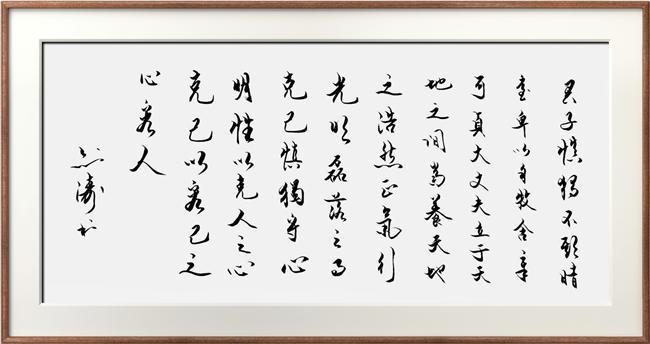 君子慎獨不欺暗
室卑以自牧含章
可貞大丈夫立于天
地之间當養天地
之浩然正氣行
光明磊落之事
克己慎獨守心
明性以克人之心
克己以容己之
心容人
濤书